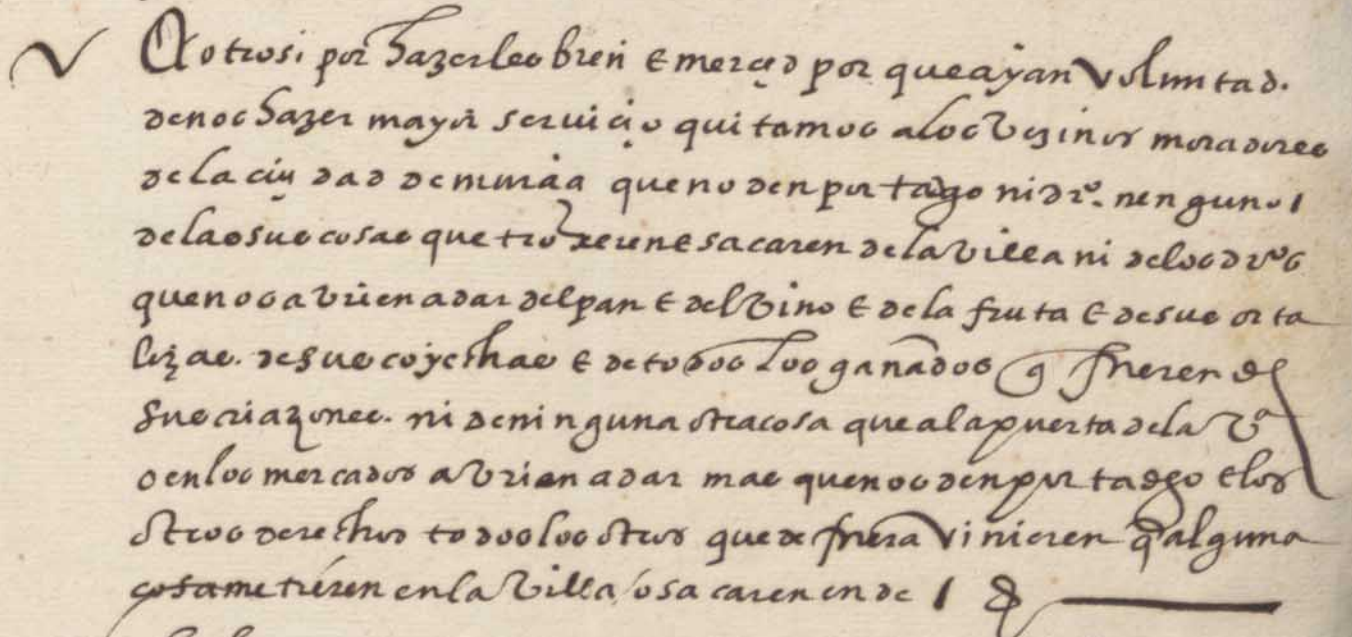 otrosi por hazerles bien e merçed por que ayan voluntad.
de nos hazer mayor seruiçio quitamos a los vezinos moradores
de la çiudad de murçia que no den portadgo ni dro. nenguno
de las sus cosas que troxeren e sacaren de la villa ni de los dros
que nos avrien a dar del pan e del vino e de la fruta e de sus orta
lizas. de sus cojechas e de todos los ganados q fueren de
sus criazones. ni de ninguna otra cosa que a la puerta de la va
o en los mercados avrien a dar mas que nos den portadgo e los
otros derechos todos los otros que de fuera vinieren q alguna
cosa metieren en la villa o sacaren ende